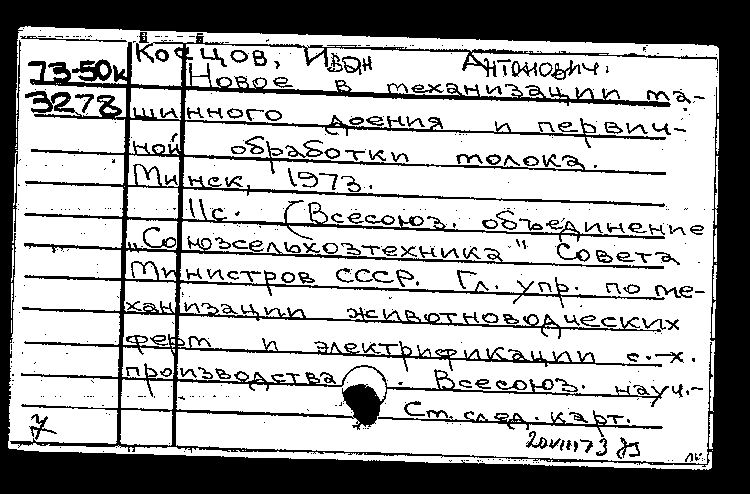 Косцов, Иван Антонович.
73-50к Новое в механизации ма-
3278 шинного доения и первич-
ной обработки молока.
Минск, 1973.
11с. (Всесоюз. объединение
"Союзсельхозтехника" Совета
Министров СССР. Гл. упр. по ме-
ханизации животноводческих
ферм и электрификации с.-х.
производства. Всесоюз. науч.-
См. след. карт.
20VIII73